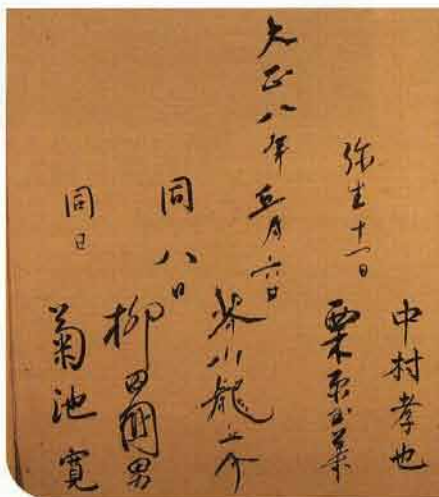 中村孝也
弥生十一日
栗原玉葉
大正八年五月六日
芥川龍之介
同八日
柳田國男
同日
菊池寛